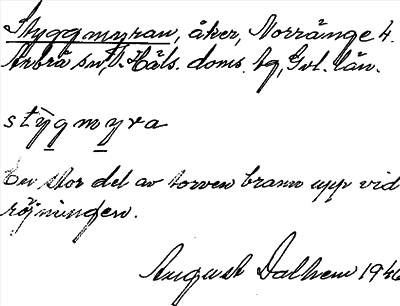 Styggmyran, åker, Norränge 4.
Arbrå sn, V. Häls. doms. bg, Gvl. län.
stỳgmyra
En stor del av torven brann upp vid
röjningen.
August Dalhem 1946